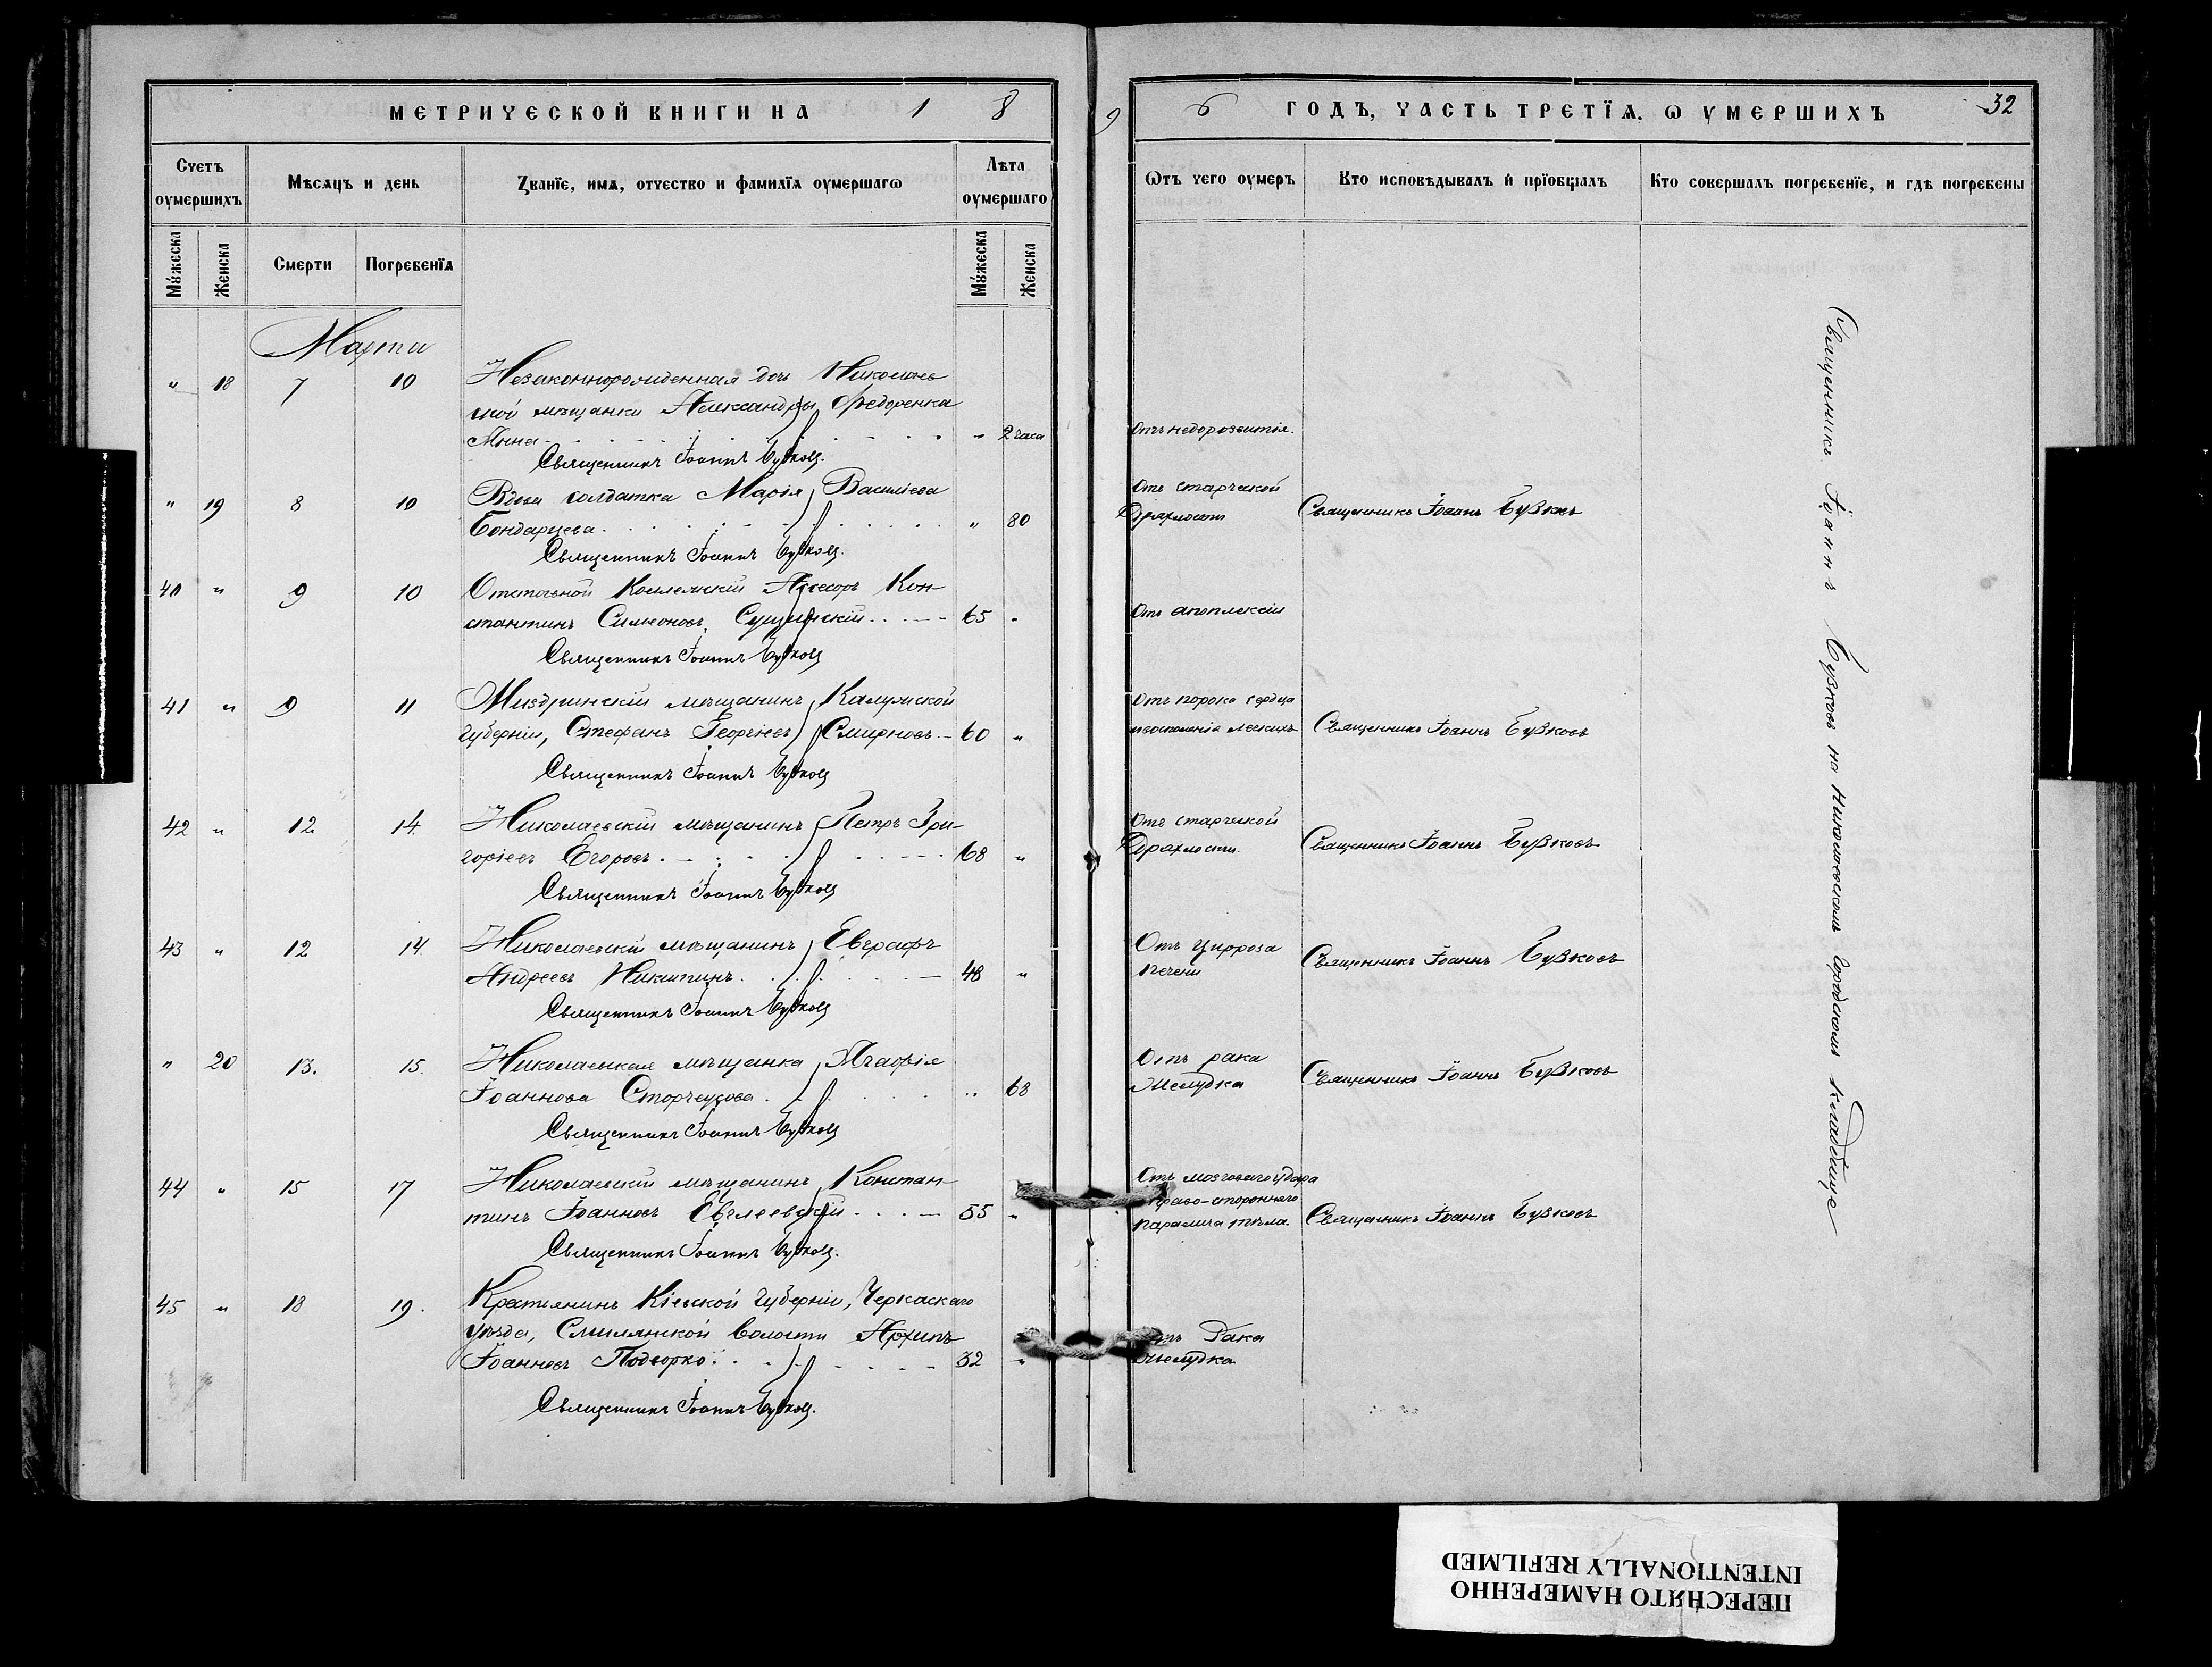 МЕТРИЧЕСКОЙ КНИГИ НА 1 8
9 6 ГОДЪ, ЧАСТЬ ТРЕТЇѦ. Ѡ УМЕРШИХЪ 32
Счетъ оумершихъ
Мѣсѧцъ и день
Званїе, имѧ, отчество и фамилїѧ оумершагѡ
Лѣта оумершаго
Ѿтъ чего оумеръ
Кто исповѣдывалъ и прїобщалъ
Кто совершалъ погребенїе, и гдѣ погребены
Мꙋжеска
Женска
Смерти
Погребенїѧ
Мꙋжеска
Женска
Марта
" 18 7 10 Незаконнорожденная дочь Николаев-
ской мѣщанки Александры Федоренка
Анна " 2 часа Отъ недоразвитія.
Священникъ Іоаннъ Бузковъ.
" 19 8 10 Вдова солдатка Марія Василіева Отъ старческой
Бондарцева " 80 дряхлости Священникъ Іоаннъ Бузковъ
Священникъ Іоаннъ Бузковъ.
40 " 9 10 Отставной Коллежскій Ассесоръ Кон-
стантинъ Симеоновъ Сущинскій 65 " Отъ апоплексіи
Священникъ Іоаннъ Бузковъ
41 " 9 11 Мыздринскій мѣщанинъ Калужской Отъ порока сердца
губерніи, Стефанъ Георгіевъ Смирновъ 60 " и воспаленія легкихъ Священникъ Іоаннъ Бузковъ
Священникъ Іоаннъ Бузковъ
42 " 12 14 Николаевскій мѣщанинъ Петръ Гри- Отъ старческой
горіевъ Егоровъ 68 " дряхлости. Священникъ Іоаннъ Бузковъ
Священникъ Іоаннъ Бузковъ
43 " 12 14 Николаевскій мѣщанинъ Евграфъ Отъ цирроза
Андреевъ Никитинъ 48 " печени Священникъ Іоаннъ Бузковъ
Священникъ Іоаннъ Бузковъ
" 20 13. 15. Николаевская мѣщанка Агафія Отъ рака
Іоаннова Сторчеусова " 68 желудка Священникъ Іоаннъ Бузковъ
Священникъ Іоаннъ Бузковъ
44 " 15 17 Николаевскій мѣщанинъ Констан- Отъ мозговаго удара
право-стороннаго
тинъ Іоанновъ 55 " паралича тѣла. Священникъ Іоаннъ Бузковъ
Священникъ Іоаннъ Бузковъ.
45 " 18 19. Крестьянинъ Кіевской губерніи, Черкаскаго
уѣзда, Смилянской волости Архипъ Отъ Рака
Іоанновъ Подворко 32 " желудка
Священникъ Іоаннъ Бузковъ.
Священникъ Іоаннъ Бузковъ на Николаевскомъ городскомъ кладбище
ПЕРЕСНЯТО НАМЕРЕННО
INTENTIONALLY REFILMED